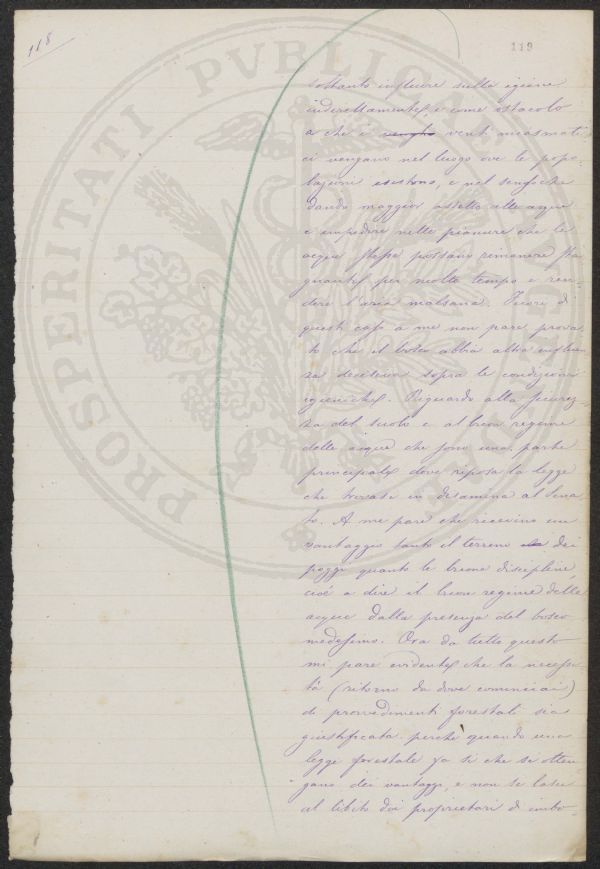 118
119
PROSPERITATI PVBLICAE AVGENDAE
soltanto influire sulla igiene
indirettamente, e come ostacolo
a che i venghi venti miasmati
ci vengano nel luogo ove le popo-
lazioni esistono, e nel
dando maggior assetto alle acque
e impedire nelle pianure che le
acque stesse possano rimanere sta
gnanti per molto tempo e ren-
dere l'aria malsana. Fuori di
questi casi a me non pare prova
to che il bosco abbia altra influen
za decisiva sopra le condizioni
igieniche. Riguardo alla
za del suolo e al buon regime
delle acque che sono una parte
principale dove riposa la legge
che trovasi in disamina al Sena
to. A me pare che ricevino un
vantaggio tanto il terreno dei
poggi quanto le buone discipline,
cioè a dire il buon regime delle
acque dalla presenza del bosco
medesimo. Ora da tutto questo
mi pare evidente che la necessi
tà (ritorno da dove cominciai)
di provvedimenti forestali sia
giustificata perchè quando una
legge forestale fa sì che si otten
gano dei vantaggi, e non si lasci
al libito dei proprietari di imbo-